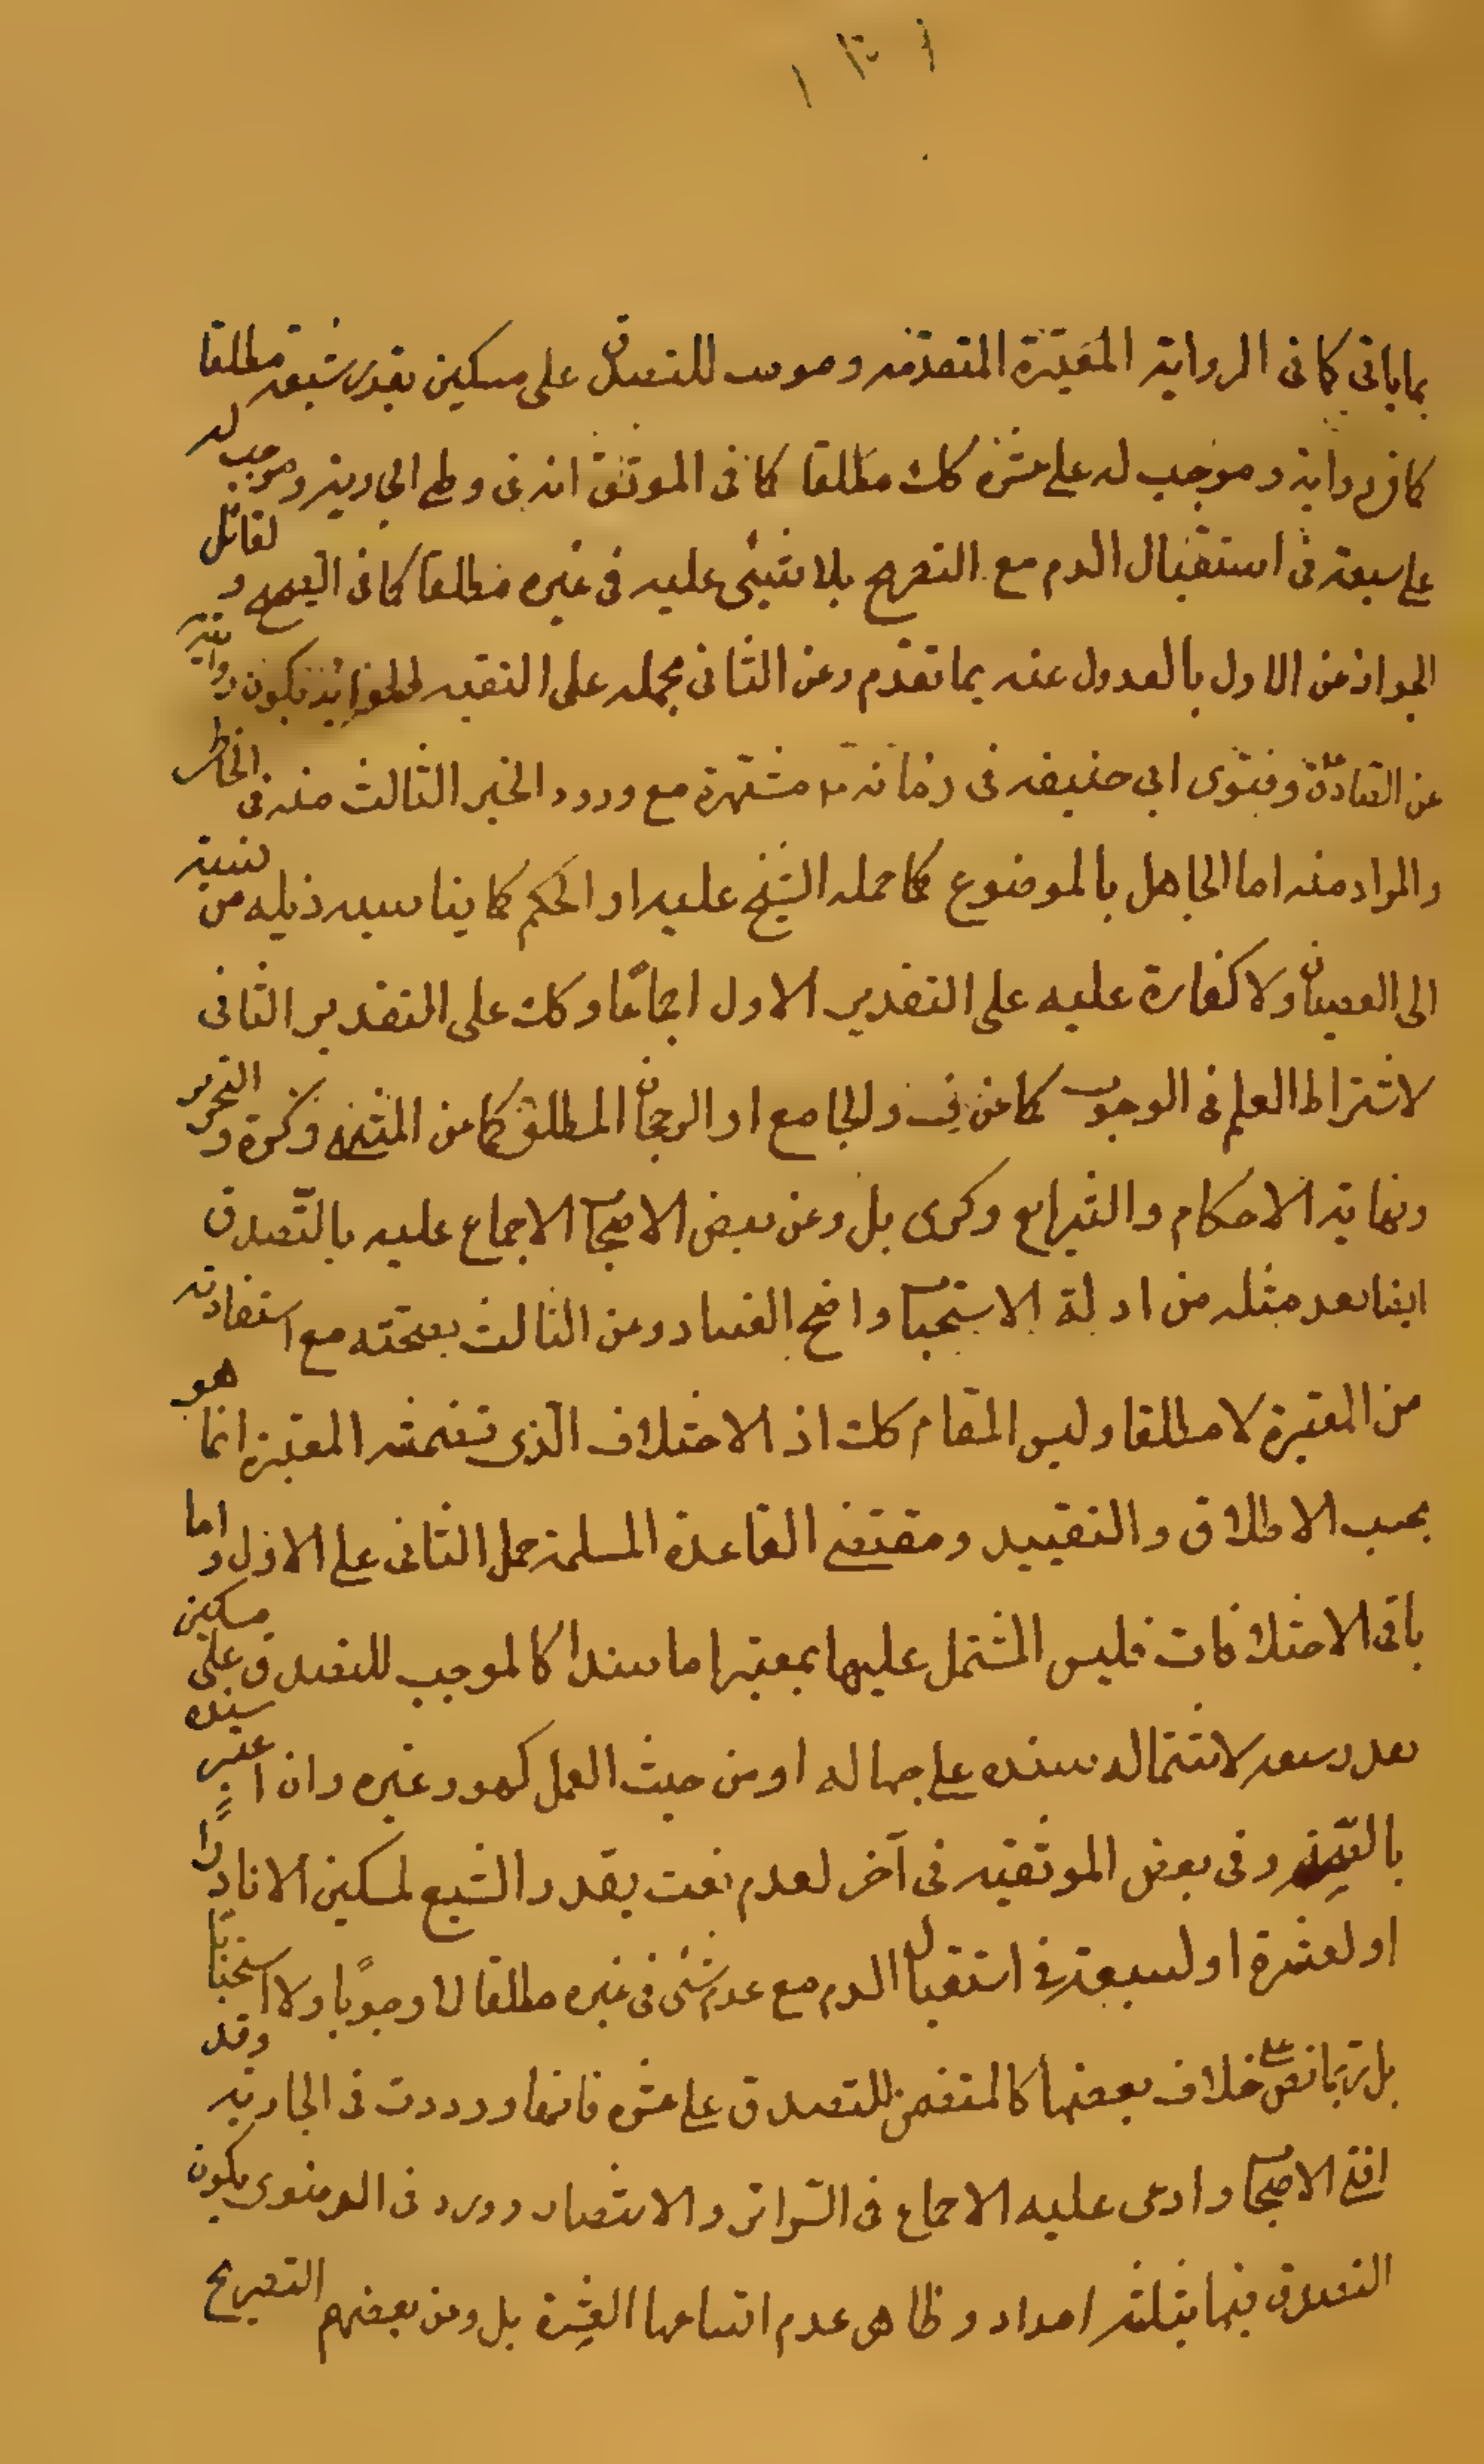 بما ياتي كما في الرواية المعتبرة المتقدمه وموجب للتصدق على مسكين بقدر شبعه مطلقا
كما في رواية وموجب له على عشرة كك مطلقا كما في الموثق انه في وطى الجارية وموجب له
على سبعة في استقبال الدم مع التصريح بلا شيئ عليه في غيره مطلقا كما في الصحيح و لقائل
الجواب عن الاول بالعدول عنه بما تقدم وعن الثاني بحمله على التقيه لجواز ان يكون رواية
عن القتادة وفتوى ابي حنيفه في زمانه مشتهرة مع ورود الخبر الثالث منه في الخاطى
والمراد منه اما الجاهل بالموضوع كما حمله الشيخ عليه او الحكم كما يناسبه ذيله من نسبته
الى العصيان ولا كفارة عليه على التقدير الاول اجماعا وكك على التقدير الثاني
لاشتراط العلم في الوجوب كما عن ف والجامع او الرجحان المطلق كما عن المنتهى وكرة و التحرير
ونهاية الاحكام والشرايع وكرى بل وعن بعض الاصحاب الاجماع عليه بالتصدق
ايضا بعد مثله من ادلة الاستحباب واضح الفساد وعن الثالث بصحته مع استفادته
من المعتبرة لا مطلقا وليس المقام كك اذ الاختلاف الذى تضمنته المعتبرة انما هو
بحسب الاطلاق والتقييد ومقتضى القاعدة المسلمة حمل الثاني على الاول و اما
باقي الاختلافات فليس المشتمل عليها بمعتبر اما سندا كالموجب للتصدق على مسكين
بقدر شبعه لاشتماله سنده على جهاله او من حيث العمل كهو وغيره وان اعتبر سنده
بالصحة وفي بعض الموثقيه في آخر لعدم نعت بقدر الشبع لمسكين الا نادرا
او لعشرة او لسبعة في استقبال الدم مع عدم شئ في غيره مطلقا لا وجوبا ولا استحبابا
بل ربما نص على خلاف بعضها كالمتضمن للتصدق على عشرة فانها وردت في الجارية وقد
افتى الاصحاب وادعى عليه الاجماع في السرائر والانتصار وورد في الرضوى بكون
التصدق فيها بثلثة امداد وظاهر عدم اتساعها العشرة بل وعن بعضهم التصريح